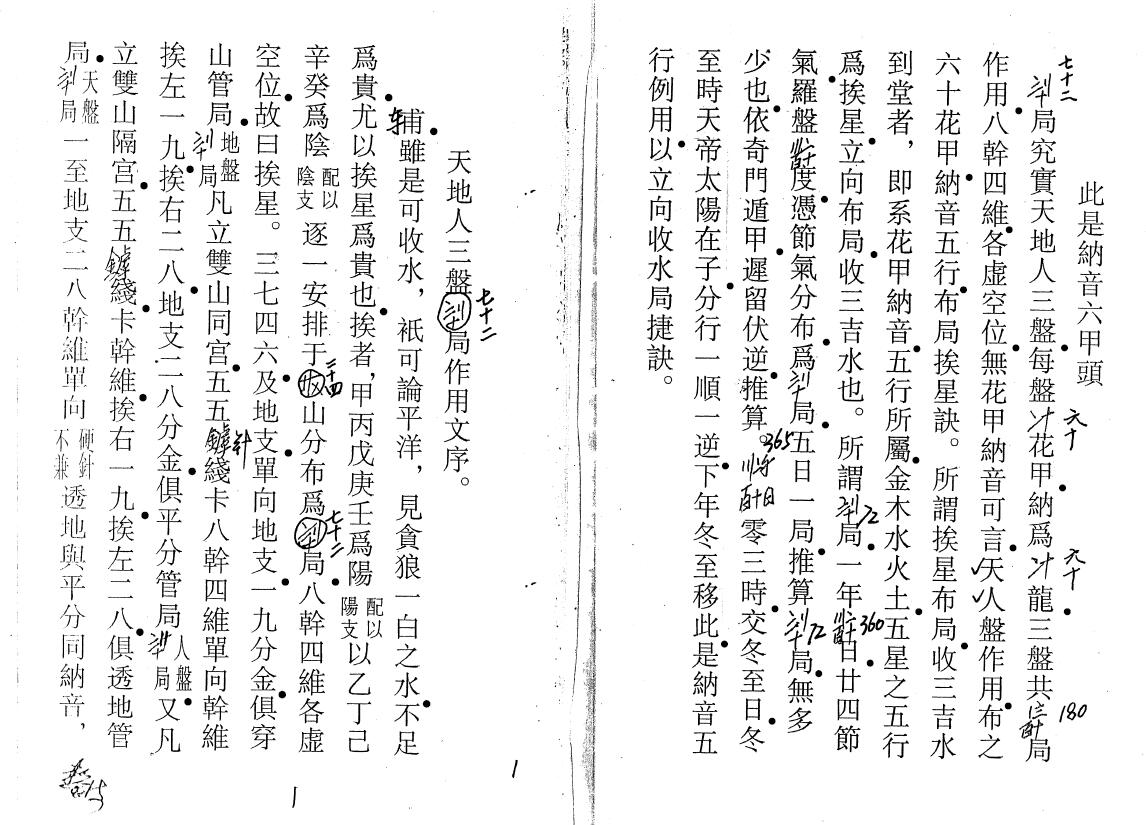 此是納音六甲頭
七十二
局究實天地人三盤每盤花甲納爲龍三盤共局
六十
六十
180
作用八幹四維各虛空位無花甲納音可言天人盤作用布之
六十花甲納音五行布局挨星訣。所謂挨星布局收三吉水
到堂者，即系花甲納音五行所屬金木水火土五星之五行
爲挨星立向布局收三吉水也。所謂局一年日廿四節
72
360
氣羅盤度憑節氣分布爲局五日一局推算局無多
72
少也依奇門遁甲遲留伏逆推算。零三時交冬至日冬
365
至時天帝太陽在子分行一順一逆下年冬至移此是納音五
行例用以立向收水局捷訣。
天地人三盤局作用文序。
七十二
輔雖是可收水，祇可論平洋，見貪狼一白之水不足
爲貴尤以挨星爲貴也挨者，甲丙戊庚壬爲陽配以陽支以乙丁己
辛癸爲陰配以陰支逐一安排于山分布爲局八幹四維各虛
七十二
空位故曰挨星。三七四六及地支單向地支一九分金俱穿
山管局地盤局凡立雙山同宫五五綫卡八幹四維單向幹維
针
挨左一九挨右二八地支二八分金俱平分管局人盤局又凡
立雙山隔宫五五綫卡幹維挨右一九挨左二八俱透地管
局天盤局一至地支二八幹維單向硬針不兼透地與平分同納音，
1
1